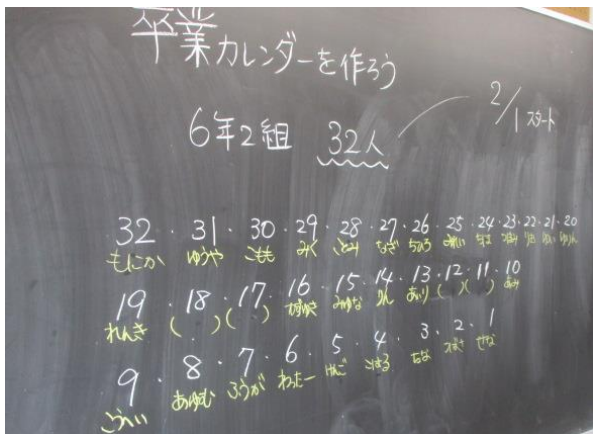 卒業カレンダーを作ろう
6年2組 32人
2/1 スタート
32・31・30・29・28・27・26・25・24・23・22・21・20
もにか ゆうや こもも みく ことみ なぎ ちひろ
19・18・17・16・15・14・13・12・11・10
れんき ( ) ( ) みゆな りん あいり ( ) ( ) あみ
9・8・7・6・5・4・3・2・1
こうへい あゆむ ふうが わったー けんご こはる なな つばさ せな